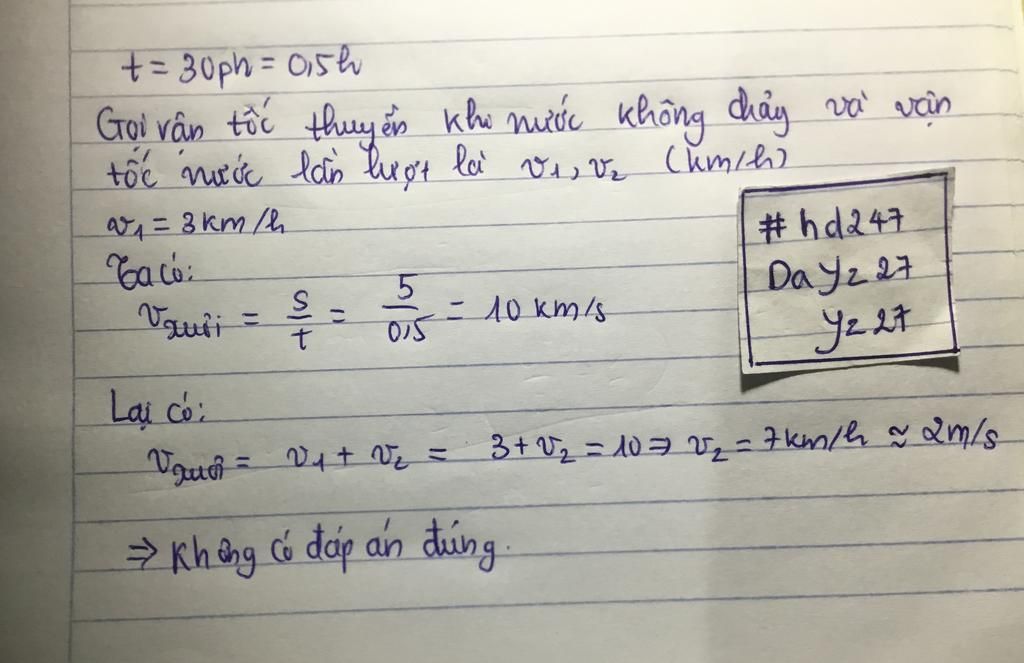 t = 30ph = 0,5h
Gọi vận tốc thuyền khi nước không chảy và vận
tốc nước lần lượt là v₁, v₂ (km/h)
v₁ = 3km/h
Ta có:
v_xuôi = S/t = 5/0,5 = 10 km/s
Lại có:
v_xuôi = v₁ + v₂ = 3 + v₂ = 10 ⇒ v₂ = 7km/h ≈ 2m/s
⇒ Không có đáp án đúng.
#hd247
DaYz27
Yz27